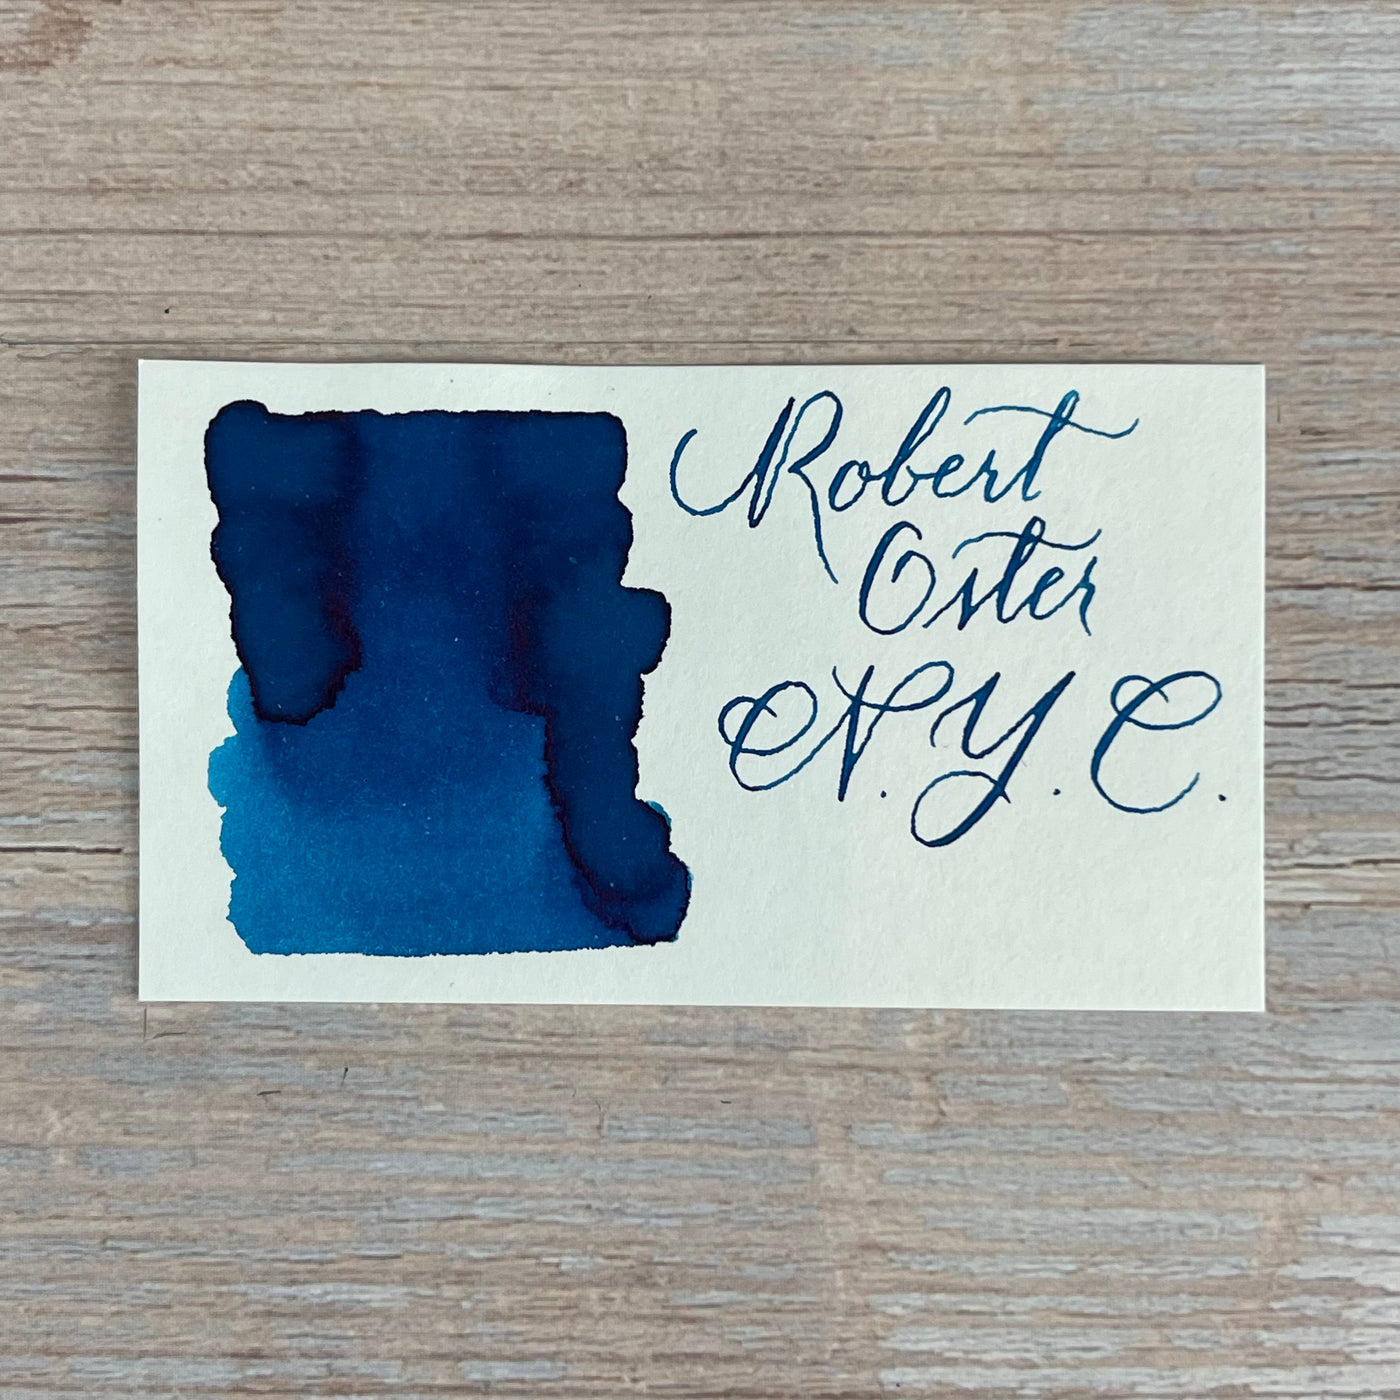 Robert
Oster
N.Y.C.